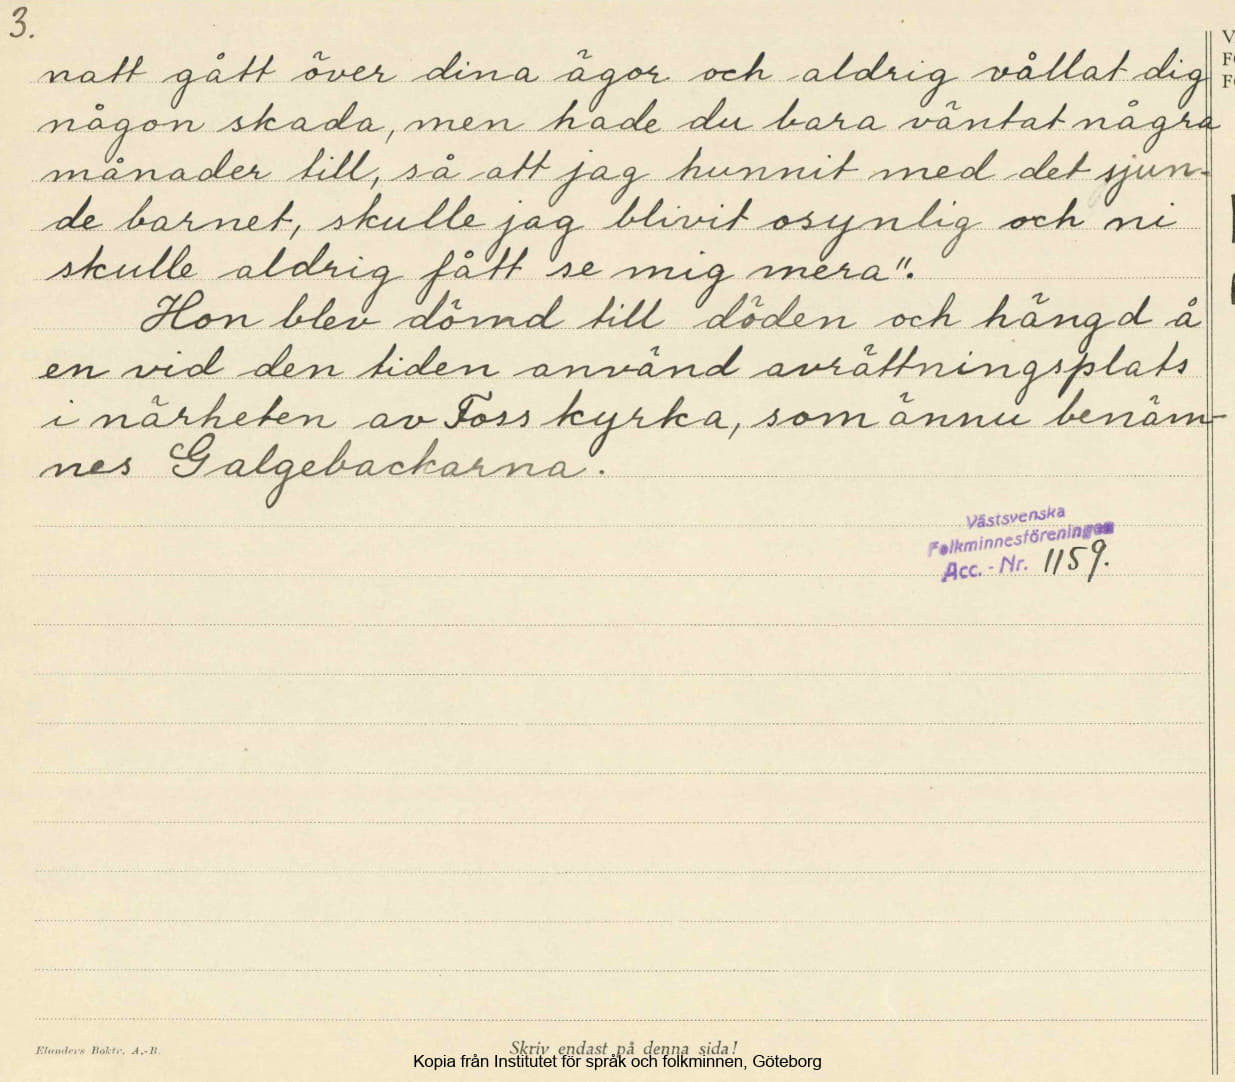 3.
natt gått över dina ägor och aldrig vållat dig
någon skada, men hade du bara väntat några
månader till, så att jag hunnit med det sjun-
de barnet, skulle jag blivit osynlig och ni
skulle aldrig fått se mig mera".
Hon blev dömd till döden och hängd å
en vid den tiden använd avrättningsplats
i närheten av Foss kyrka, som ännu benäm-
nes Galgebackarna.
Västsvenska
Folkminnesföreningen
Acc. - Nr. 1159.
Elanders Boktr. A.-B.
Skriv endast på denna sida!
Kopia från Institutet för språk och folkminnen, Göteborg